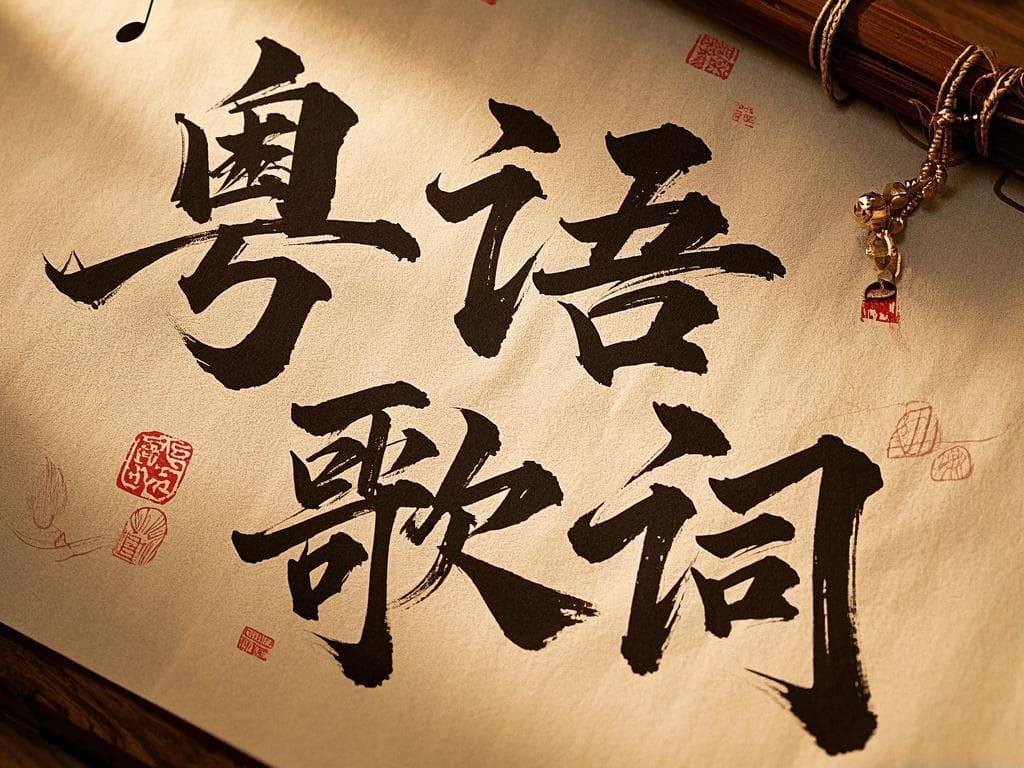 粤语
歌词